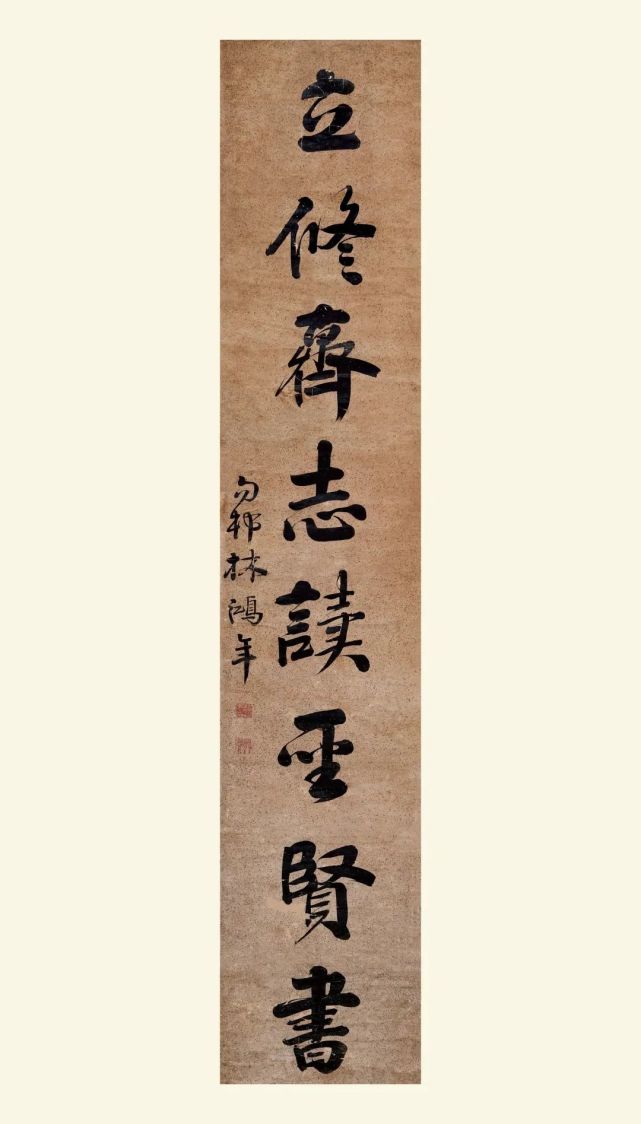 立修齊志讀聖賢書
勿邨林鴻年